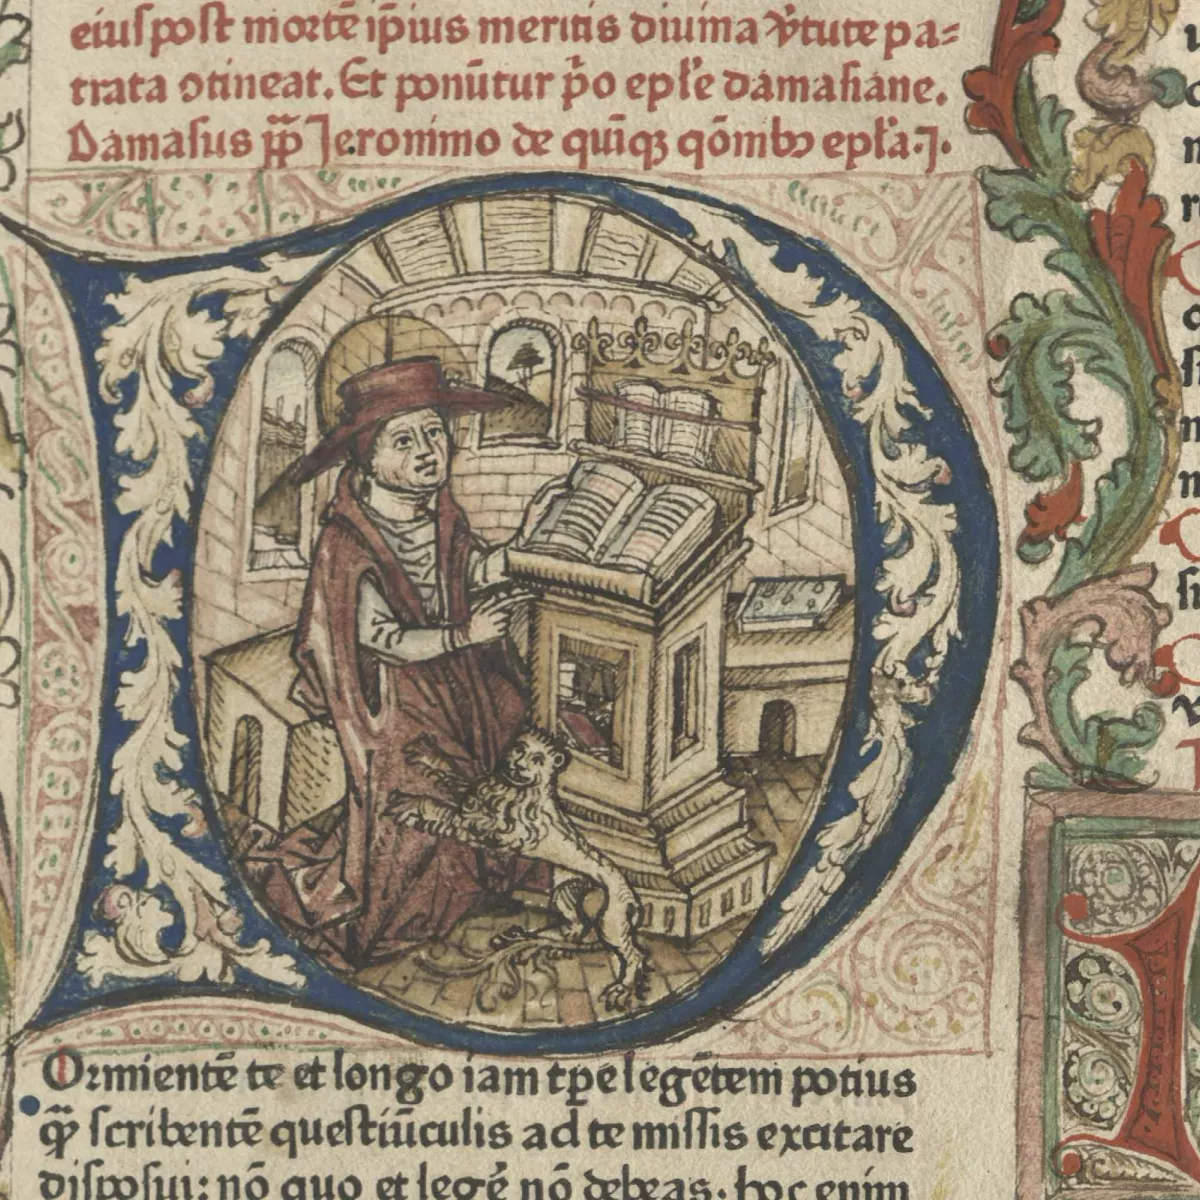 eiuſpoſt mortē ip̄ius meritis diuina v̓tute pa=
trata ↄtineat. Et ponūtur p̓o epl̓e damaſiane.
Damaſus pp̄ Jeronimo de quīqꝫ qōnibꝰ epl̓a.j.
Ormientē te et longo iam tꝑe legētem potius
qꝫ̄ ſcribentē queſtiūculis ad te miſſis excitare
diſpoſui: nō quo et legē nō debeas. hoc enim